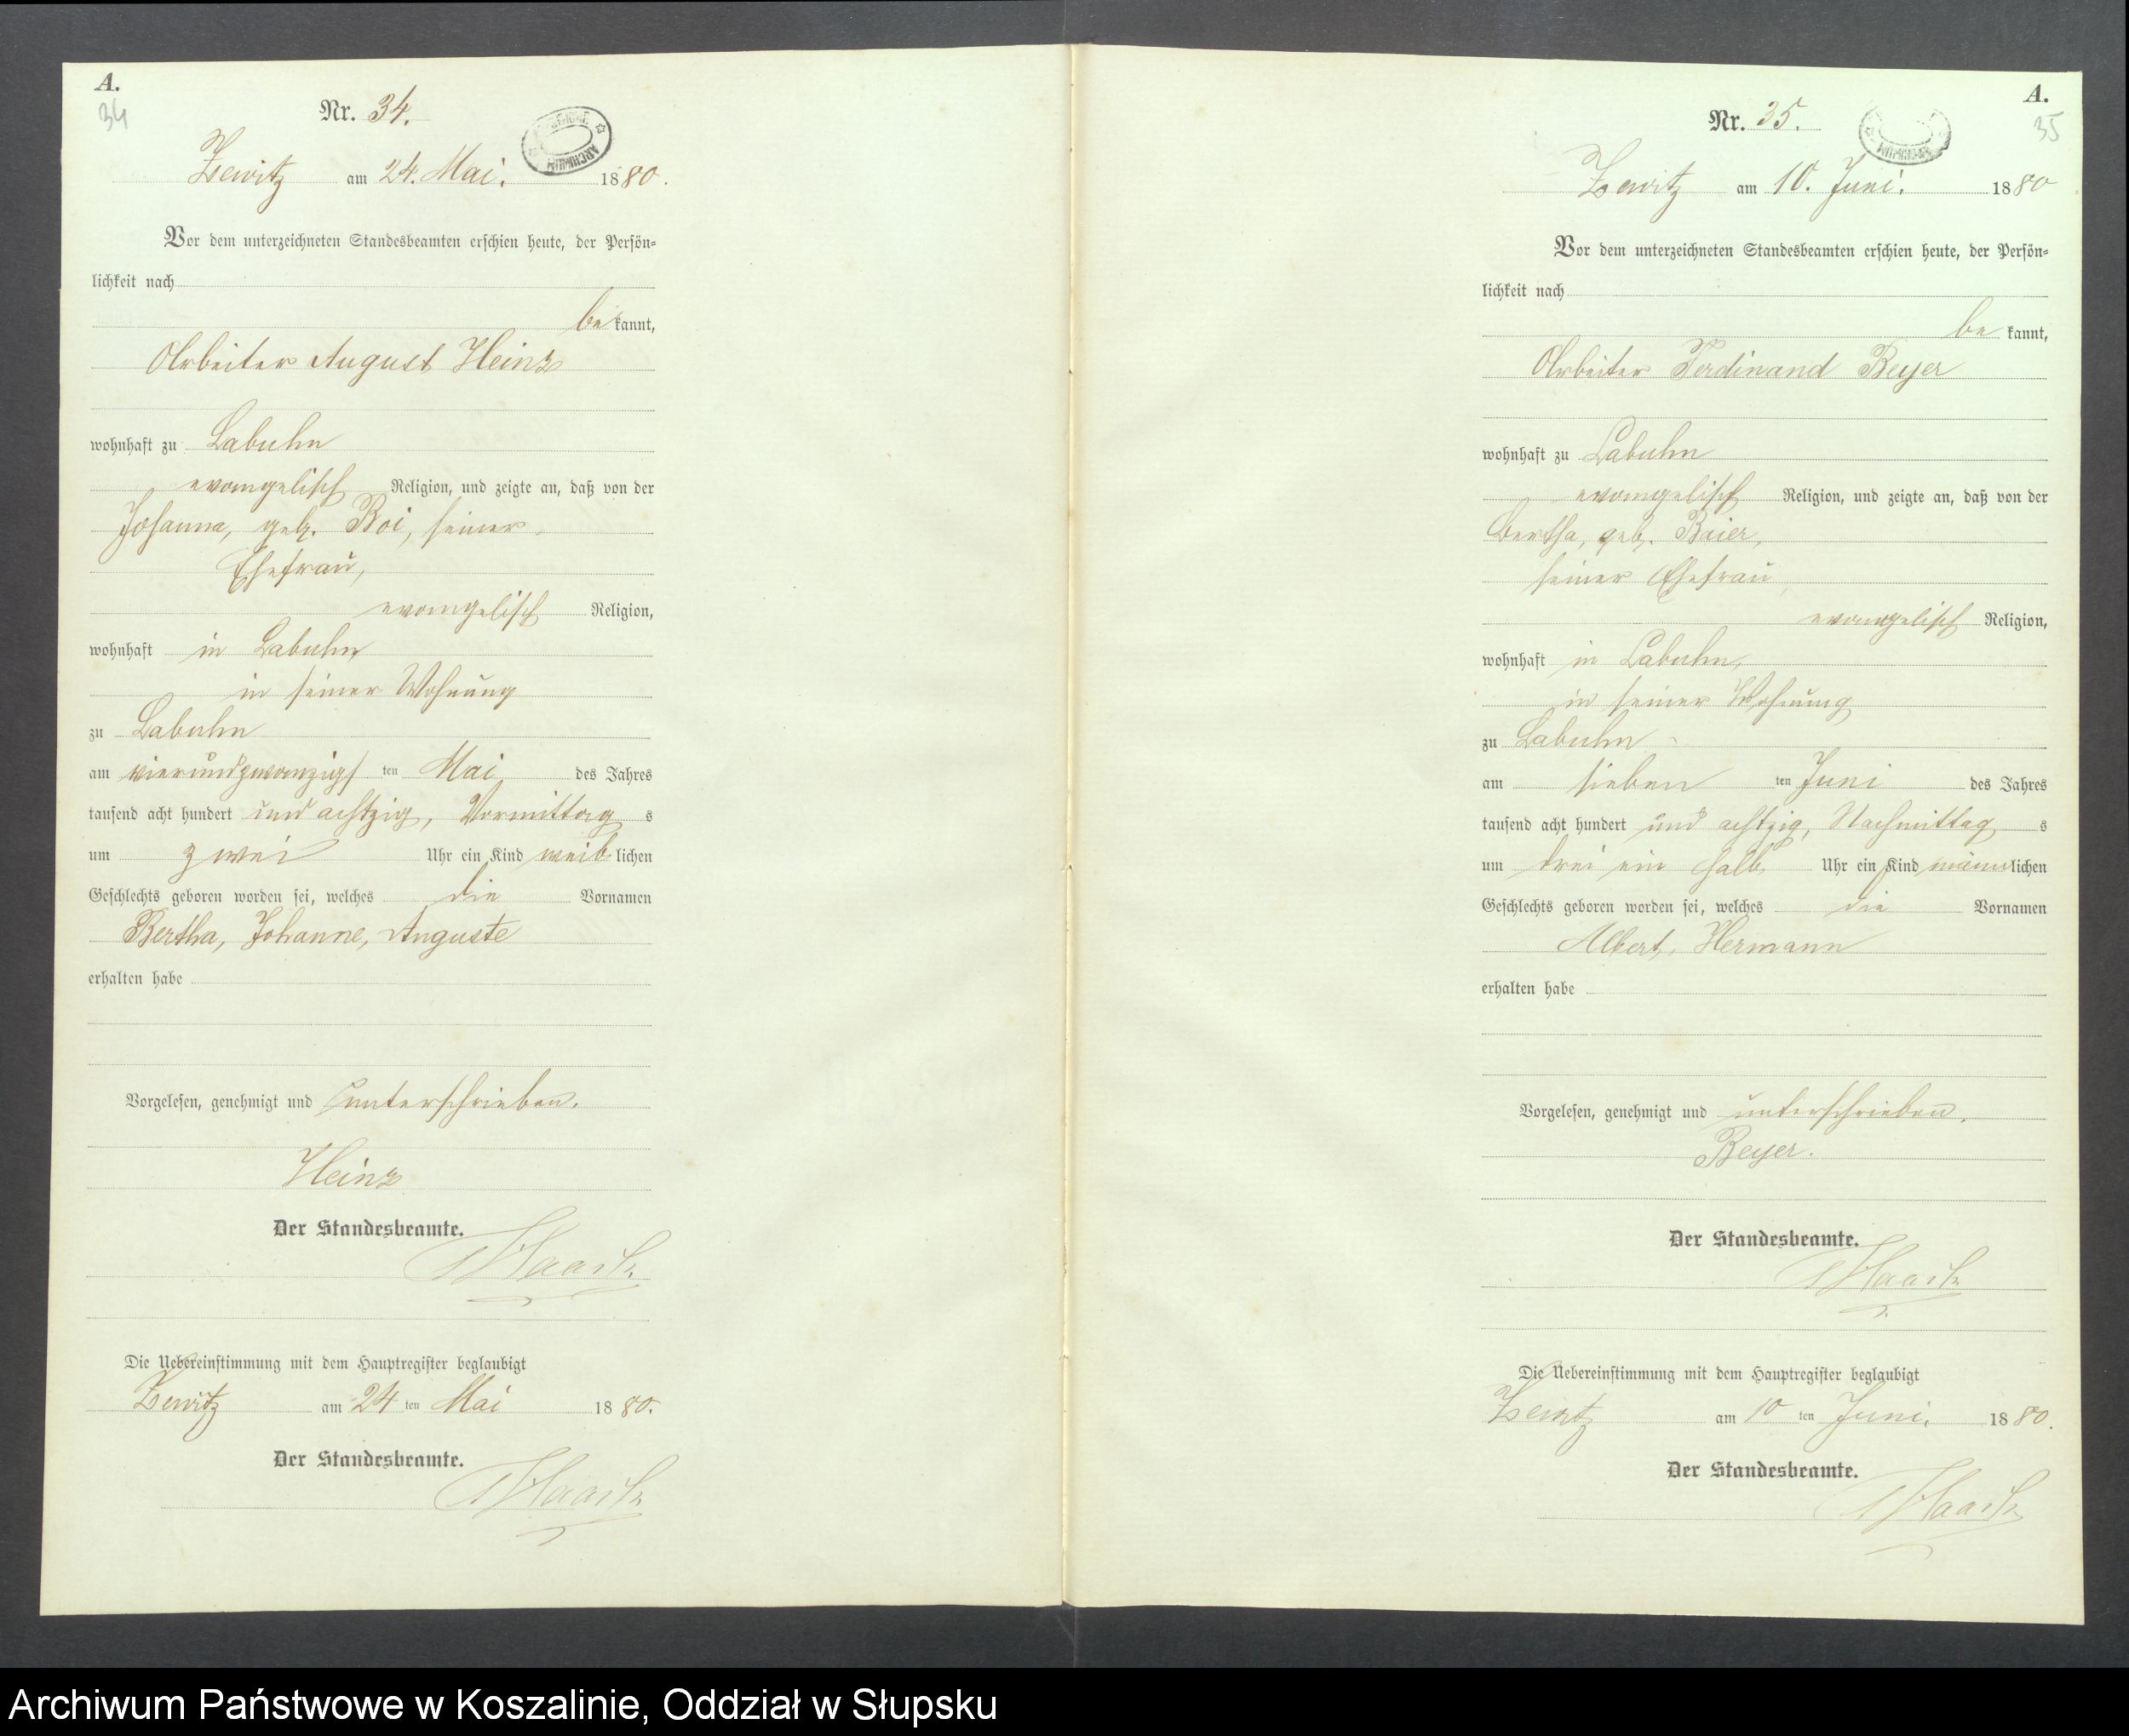 A.
34
Nr. 34.
Zewitz am 24. Mai. 1880.
Vor dem unterzeichneten Standesbeamten erschien heute, der Persön=
lichkeit nach
bekannt,
Arbeiter August Heinz
wohnhaft zu Labuhn
evangelisch Religion, und zeigte an, daß von der
Johanna, geb. Boi, seiner
Ehefrau,
evangelisch Religion,
wohnhaft in Labuhn
in seiner Wohnung
zu Labuhn
am vierundzwanzigsten Mai des Jahres
tausend acht hundert und achtzig, Vormittags
um zwei Uhr ein Kind weiblichen
Geschlechts geboren worden sei, welches die Vornamen
Bertha, Johanne, Auguste
erhalten habe
Vorgelesen, genehmigt und unterschrieben.
Heinz
Der Standesbeamte.
Haack
Die Uebereinstimmung mit dem Hauptregister beglaubigt
Zewitz am 24ten Mai 1880.
Der Standesbeamte.
Haack
A.
35
Nr. 35.
Zewitz am 10. Juni. 1880
Vor dem unterzeichneten Standesbeamten erschien heute, der Persön=
lichkeit nach
bekannt,
Arbeiter Ferdinand Beyer
wohnhaft zu Labuhn
evangelisch Religion, und zeigte an, daß von der
Bertha, geb. Baier,
seiner Ehefrau,
evangelisch Religion,
wohnhaft in Labuhn,
in seiner Wohnung
zu Labuhn
am siebenten Juni des Jahres
tausend acht hundert und achtzig, Nachmittags
um drei ein halb Uhr ein Kind männlichen
Geschlechts geboren worden sei, welches die Vornamen
Albert, Hermann
erhalten habe
Vorgelesen, genehmigt und unterschrieben.
Beyer.
Der Standesbeamte.
Haack
Die Uebereinstimmung mit dem Hauptregister beglaubigt
Zewitz am 10ten Juni. 1880.
Der Standesbeamte.
Haack
Archiwum Państwowe w Koszalinie, Oddział w Słupsku